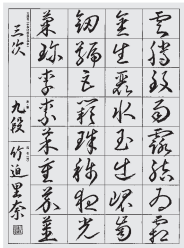 雲騰致雨露結為霜
金生麗水玉出崐岡
劔號巨闕珠稱夜光
菓珍李柰菜重芥薑
三次 九段 竹迫里奈